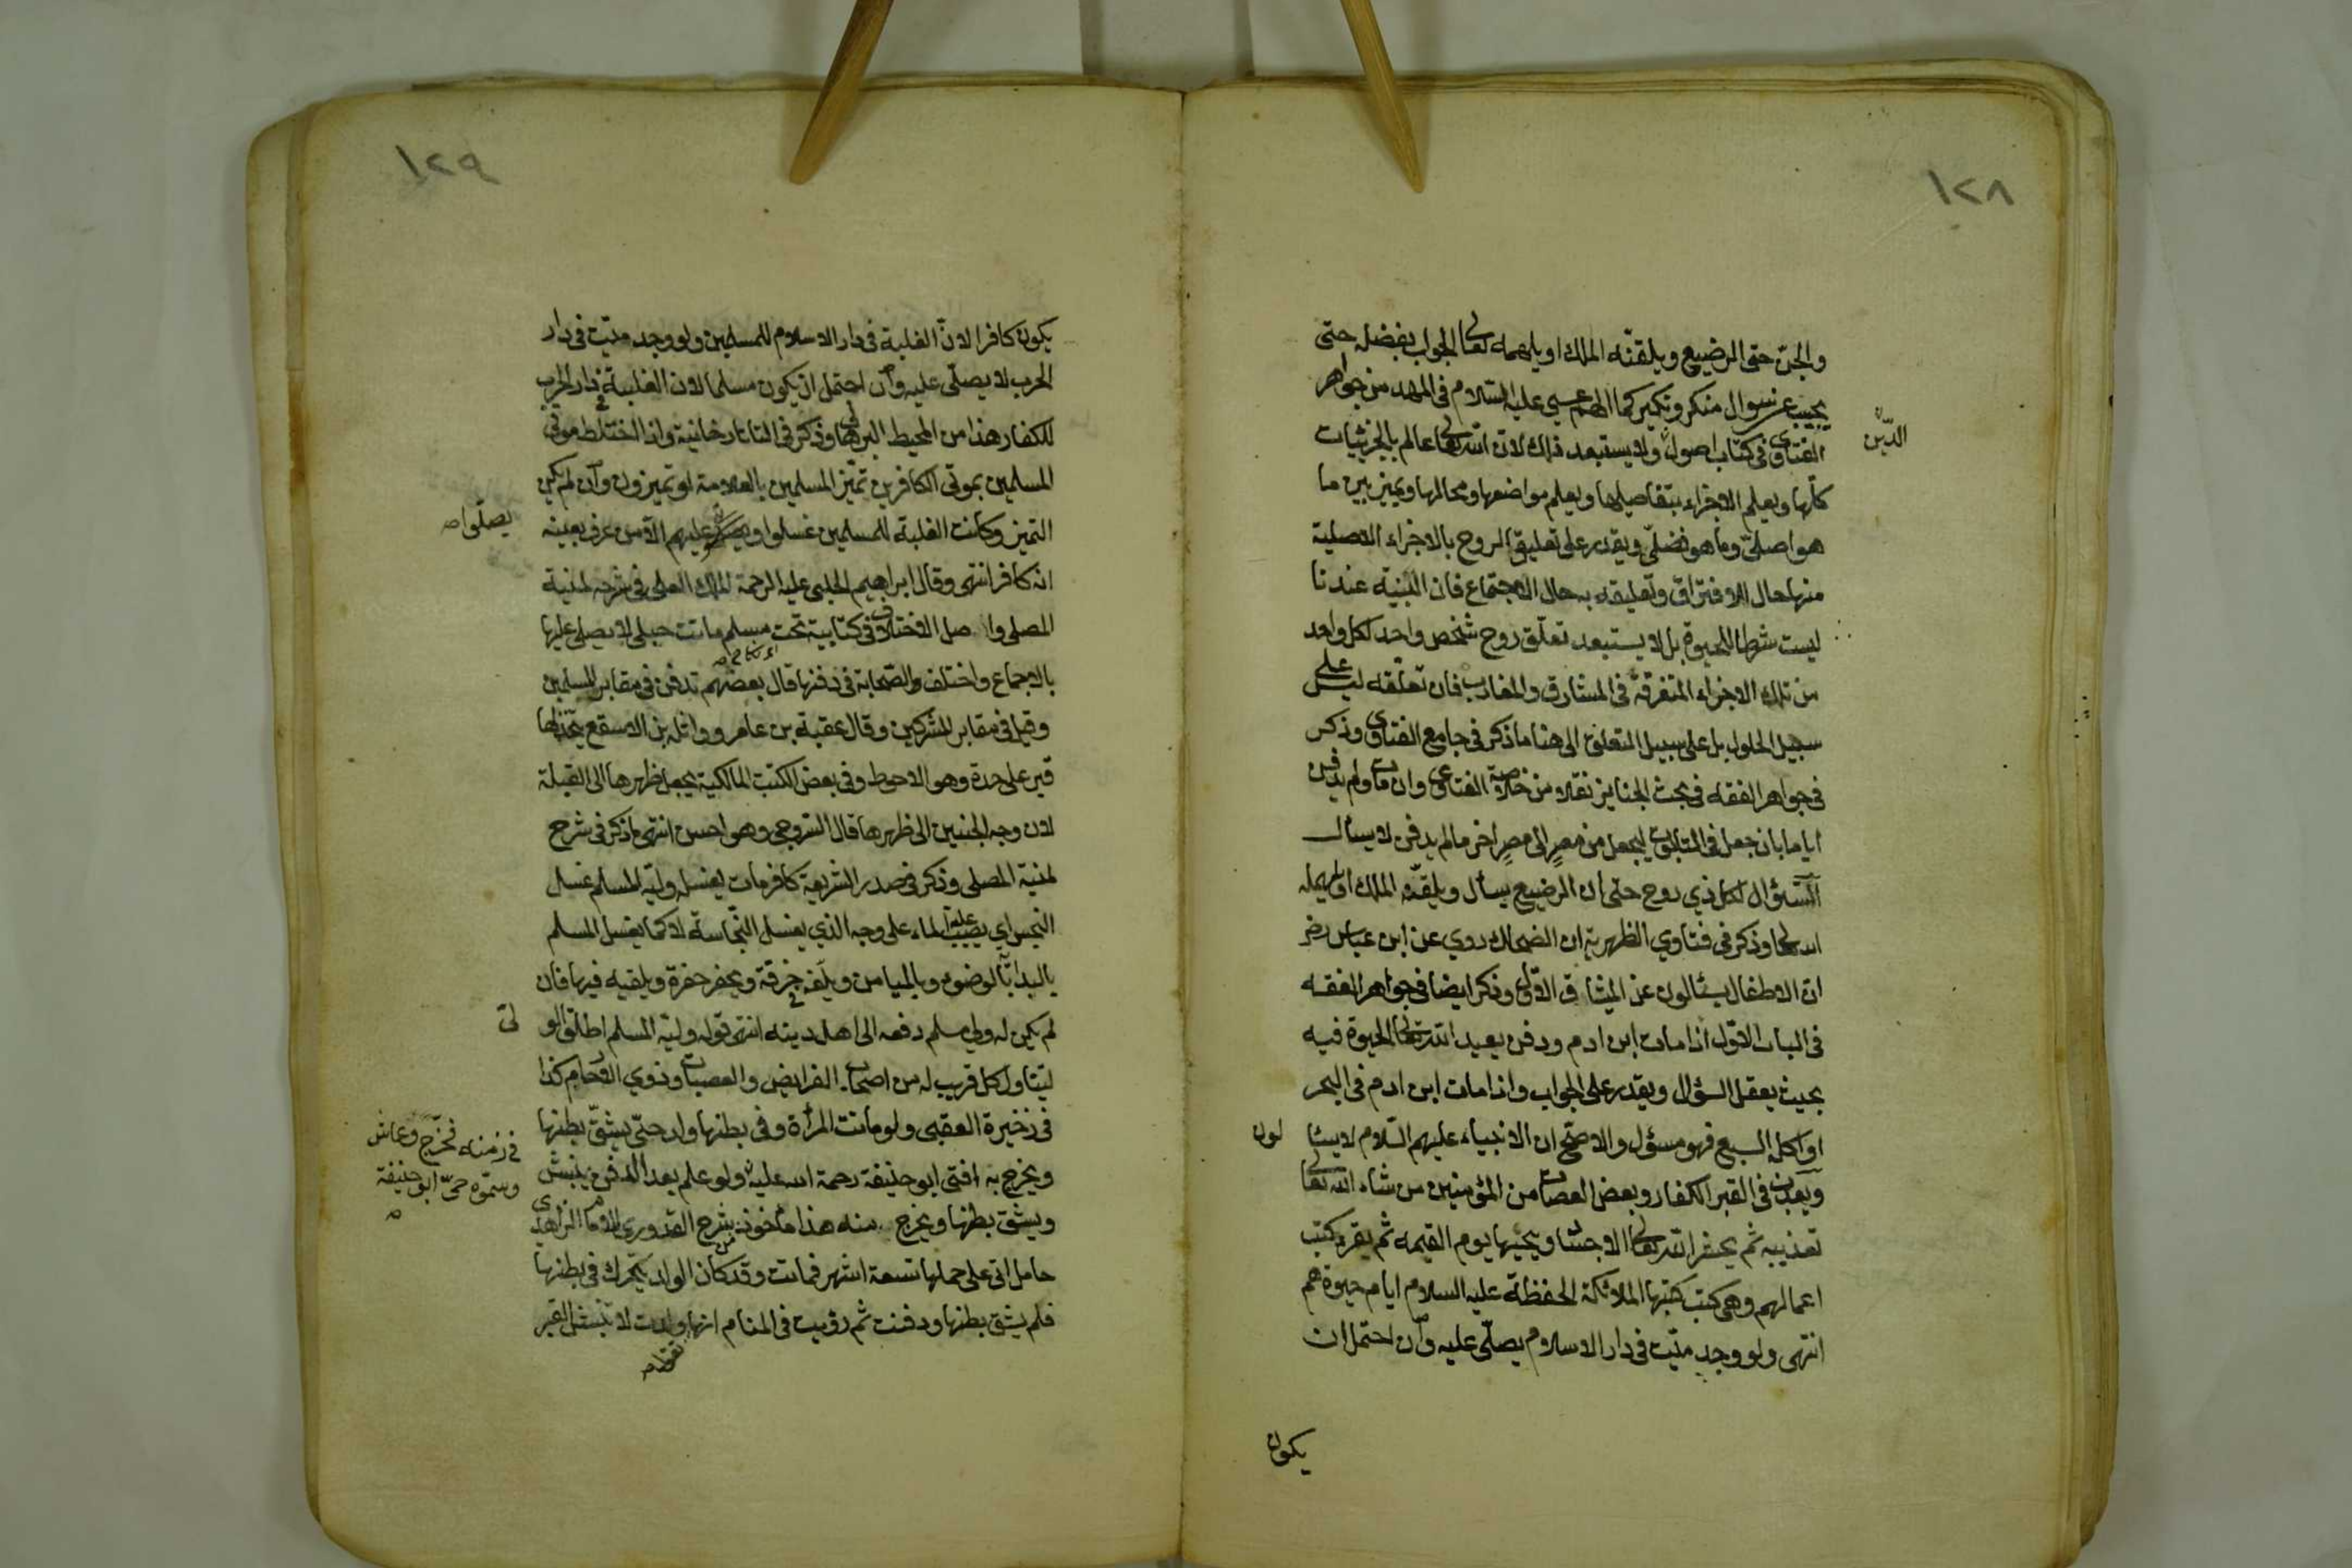 ١٢٨
والجن حتى الرضيع ويلقنه الملك او يلهمه تعالى الجواب بفضله حتى
يجيب عن سوال منكر ونكير كما الهم عيسى عليه السلام فى المهد من جواهر
الفتاوى فى كتاب اصول ولا يستبعد ذلك لان الله تعالى عالم بالجزئيات
الدّين
كلّها ويعلم الاجزاء بتفاصيلها ويعلم مواضعها ومحالها ويميز بين ما
هو اصلىّ وما هو فضلىّ ويقدر على تعليق الروح بالاجزاء الاصلية
منها حال الافتراق وتعليقه به حال الاجتماع فان البنية عندنا
ليست شرطا للحيوة بل لا يستبعد تعلّق روح شخص واحد لكل واحد
من تلك الاجزاء المتفرقة فى المشارق والمغارب فان تعلّقه ليس على
سبيل الحلول بل على سبيل التعلق الى هنا ما ذكر فى جامع الفتاوى وذكر
فى جواهر الفقه فى بحث الجنايز نقلا من خلاصة الفتاوى وان مات ولم يدفن
اياما بان جعل فى التابوت ليحمل من مصرٍ الى مصرٍ اخر مالم يدفن لا يسأل
السّؤال لكل ذي روح حتى ان الرضيع يسأل ويلقّنه الملك او يلهمه
الله تعالى وذكر فى فتاوي الظهيرية ان الضحاك روي عن ابن عباس رضى
انّ الاطفال يسئالون عن الميثاق الاوّل وذكر ايضا فى جواهر الفقه
فى الباب الاوّل اذا مات ابن ادم ودفن يعيد الله تعالى الحيوة فيه
بحيث يعقل السؤال ويقدر على الجواب واذا مات ابن ادم فى البحر
او اكله السبع فهو مسؤل والاصحّ ان الانبياء عليهم السّلام لا يسئا
لون
ويعذب فى القبر الكفار وبعض العصات من المؤمنين من شاء الله تعالى
تعذيبه ثم يحشر الله تعالى الاجساد ويحييها يوم القيمه ثم يقرء كتب
اعمالهم وهى كتب كتبها الملائكة الحفظة عليه السلام ايام حيوة هم
انتهى ولو وجد ميّت فى دار الاسلام يصلّى عليه وان احتمل ان
يكون
١٢٩
يكون كافرا لانّ الغلبة فى دار الاسلام للمسلمين ولو وجد ميّت فى دار
الحرب لا يصلّى عليه وان احتمل ان يكون مسلما لان الغلبة فى دار الحرب
للكفار هذا من المحيط البرهانى وذكر فى التاتارخانية واذا اختلط موتى
المسلمين بموتى الكافرين تميّز المسلمين بالعلامة لو تميزون وان لم يكن
التميز وكانت الغلبة للمسلمين غسلوا و عليهم الاّ من عرف بعينه
يصلّوا صه
انه كافر انتهى وقال ابراهيم الحلبى عليه الرحمة الملك العلى فى شرحه لمنية
المصلى واصل الاختلاف فى كتابية تحت مسلم ماتت حبلى لا يصلى عليها
بالاجماع واختلف الصحابة فى دفنها قال بعضهم تدفن فى مقابر المسلمين
وقيل فى مقابر المشركين وقال عقبة بن عامر وواثلة بن الاسقع يتّخذ لها
قبر على حدة وهو الاحوط وفى بعض الكتب المالكية يجعل ظهرها الى القبلة
لان وجه الجنين الى ظهرها قال السّروجى وهو احسن انتهى ما ذكر فى شرح
لمنية المصلى وذكر فى صدر الشريعة كافر مات يغسله وليّه المسلم غسل
النجس اي يصب عليه الماء على وجه الذي يغسل النّجاسة لا كما يغسل المسلم
بالبداية بالوضوء وبالميامن ويلف فى خرقة ويحفر حفرة ويلقيه فيها فان
لم يكن له ولي مسلم دفعه الى اهل دينه انتهى قوله وليّه المسلم اطلق الو
لىّ
ليتناول كل قريب له من اصحاب الفرايض والعصبات وذوي الارحام كذا
فى ذخيرة العقبى ولو ماتت المرأة وفى بطنها ولد حىّ يشقّ بطنها
ويخرج به افتى ابو حنيفة رحمة الله عليه ولو علم بعد الدفن ينبش
فى زمنه فخرّج وعاش
وسمّوه حىّ ابو حنيفة
صه
ويشق بطنها ويخرج منه هذا مأخوذ من شرح القدورى للامام الزاهدى
حامل اتى على حملها تسعة اشهر فماتت وقد كان الولد يتحرك فى بطنها
فلم يشق بطنها ودفنت ثم رؤيت فى المنام انها ولدت لا ينبش القبر